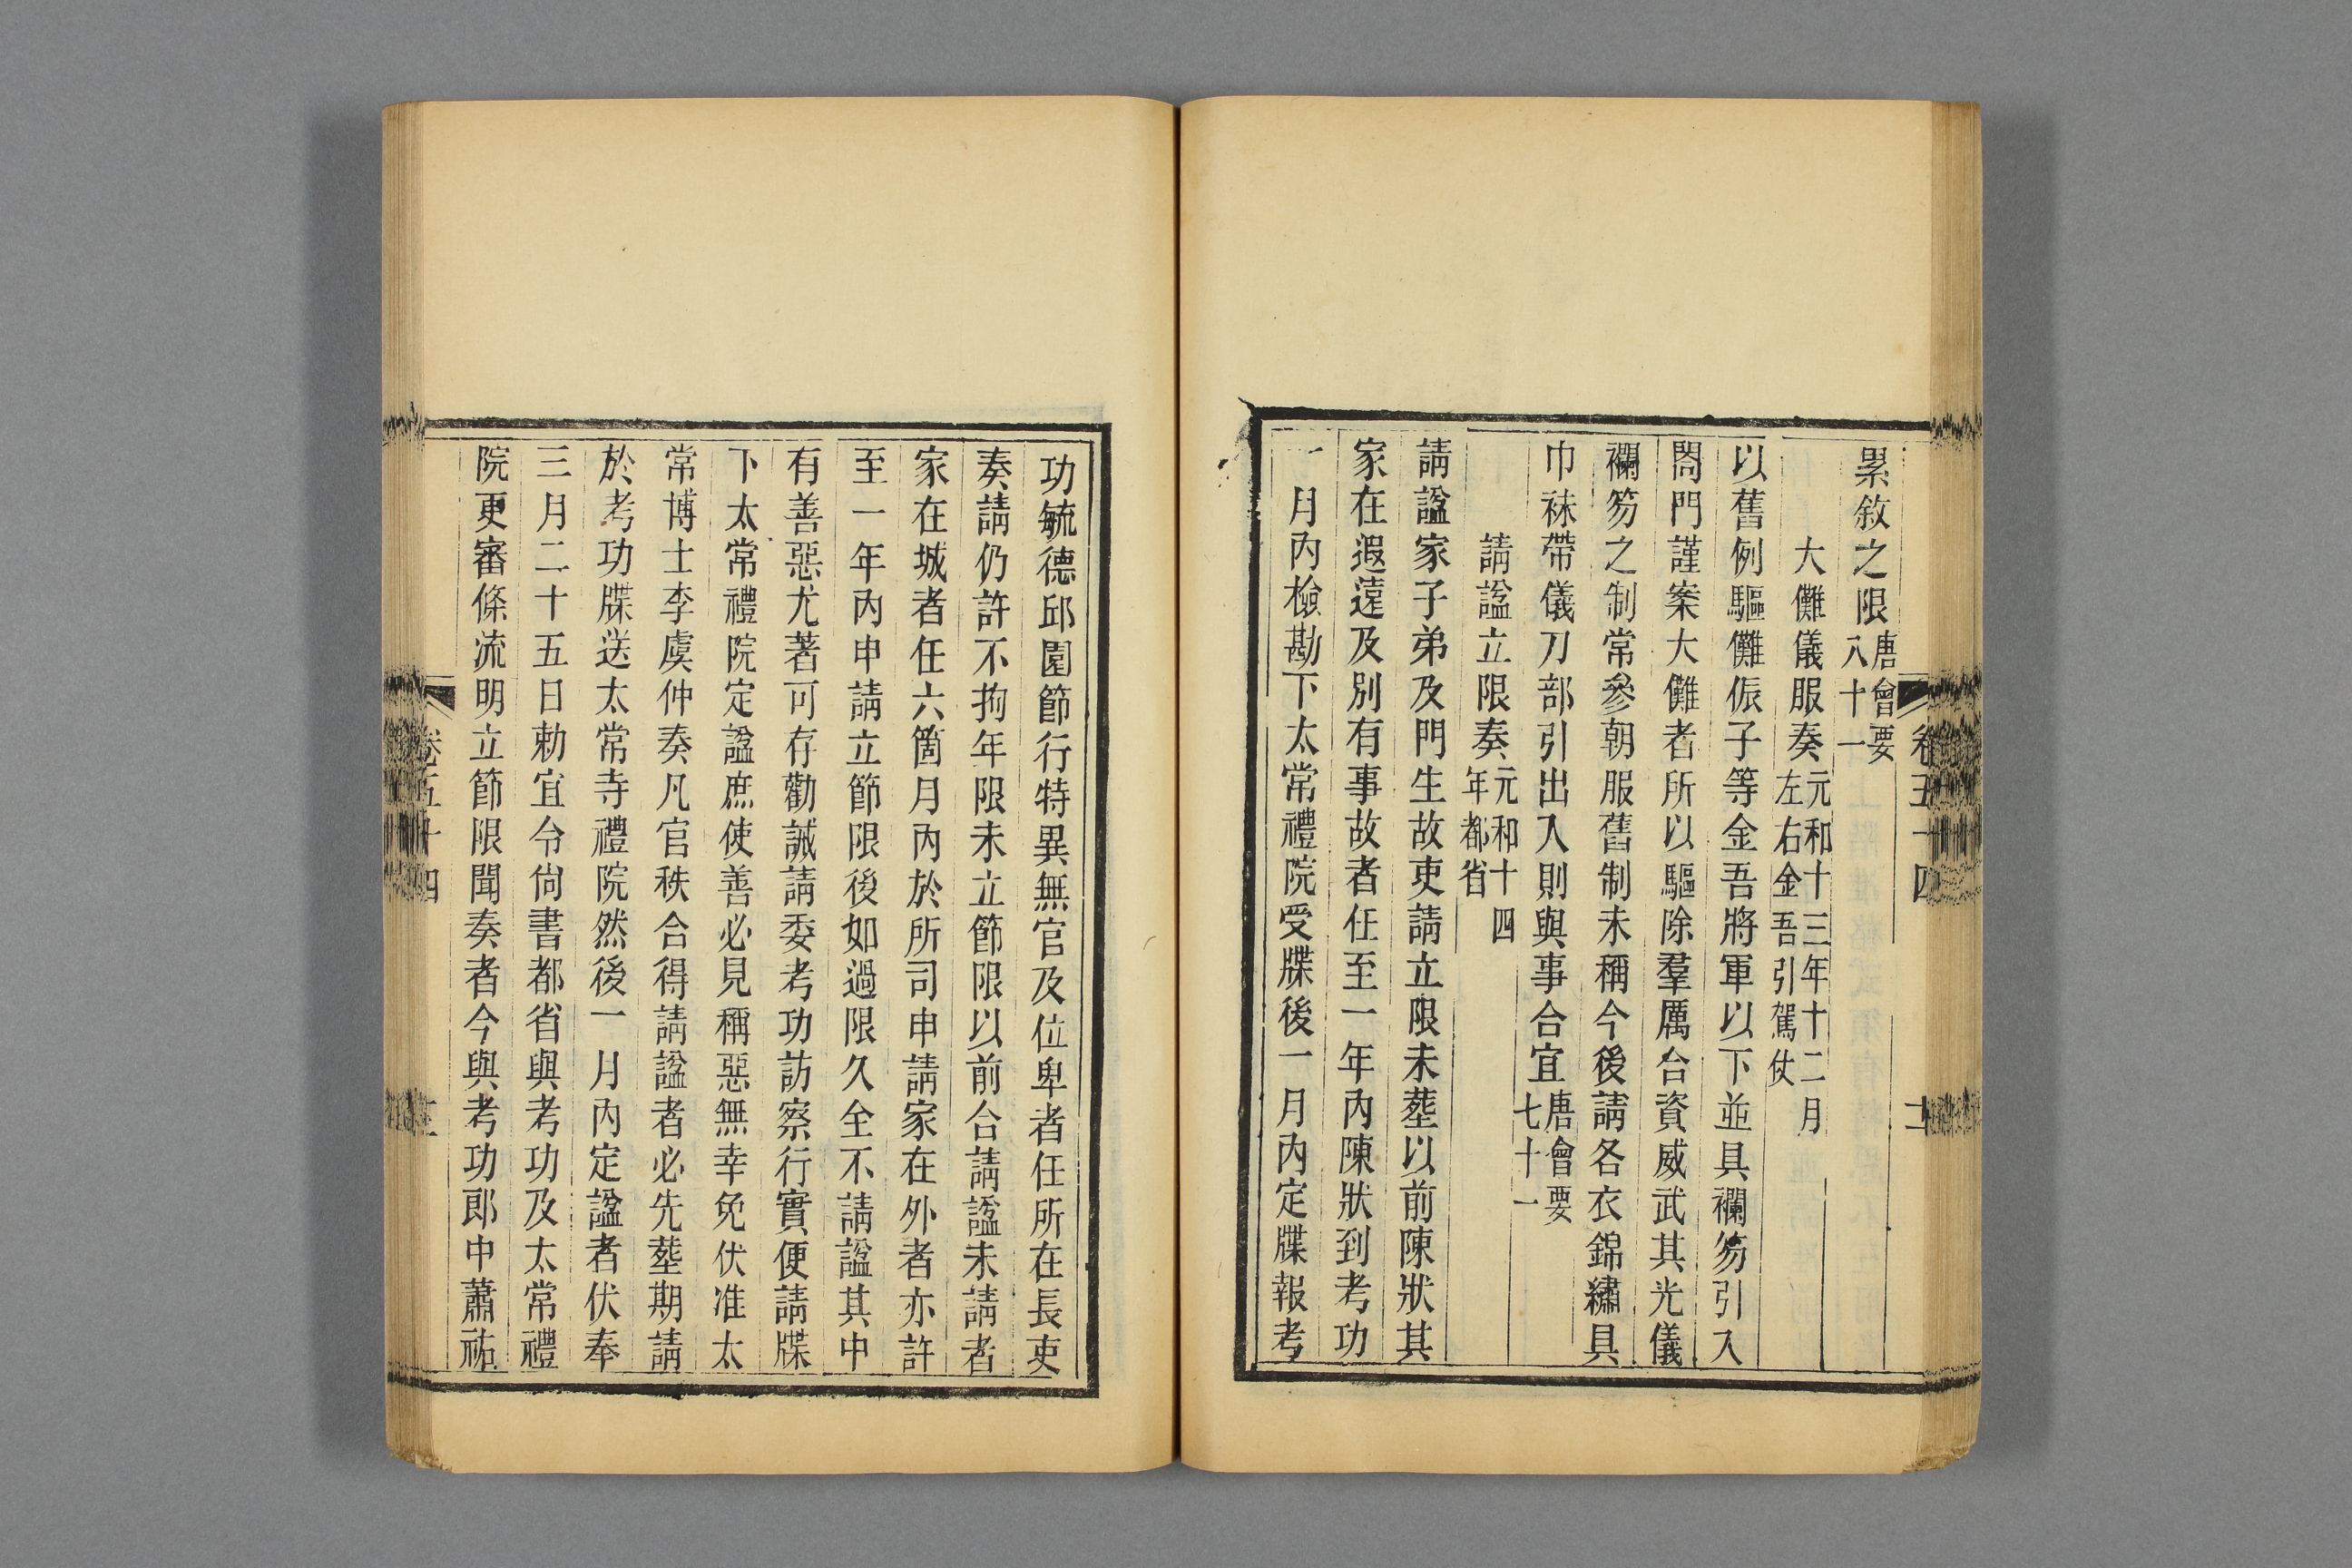 累敘之限唐會要八十一
大儺儀服奏元和十三年十二月左右金吾引駕仗
以舊例驅儺侲子等金吾將軍以下並具襴笏引入
閤門謹案大儺者所以驅除羣厲合資威武其光儀
襴笏之制常參朝服舊制未稱今後請各衣錦繡具
巾袜帶儀刀部引出入則與事合宜唐會要七十一
請諡立限奏元和十四年都省
請諡家子弟及門生故吏請立限未葬以前陳狀其
家在遐遠及別有事故者任至一年內陳狀到考功
一月內檢勘下太常禮院受牒後一月內定牒報考
卷五十四
功毓德邱園節行特異無官及位卑者任所在長吏
奏請仍許不拘年限未立節限以前合請諡未請者
家在城者任六箇月內於所司申請家在外者亦許
至一年內申請立節限後如過限久全不請諡其中
有善惡尤著可存勸誡請委考功訪察行實便請牒
下太常禮院定諡庶使善必見稱惡無幸免伏准太
常博士李虞仲奏凡官秩合得請諡者必先葬期請
於考功牒送太常寺禮院然後一月內定諡者伏奉
三月二十五日勅宜令尙書都省與考功及太常禮
院更審條流明立節限聞奏者今與考功郎中蕭祐
卷五十四